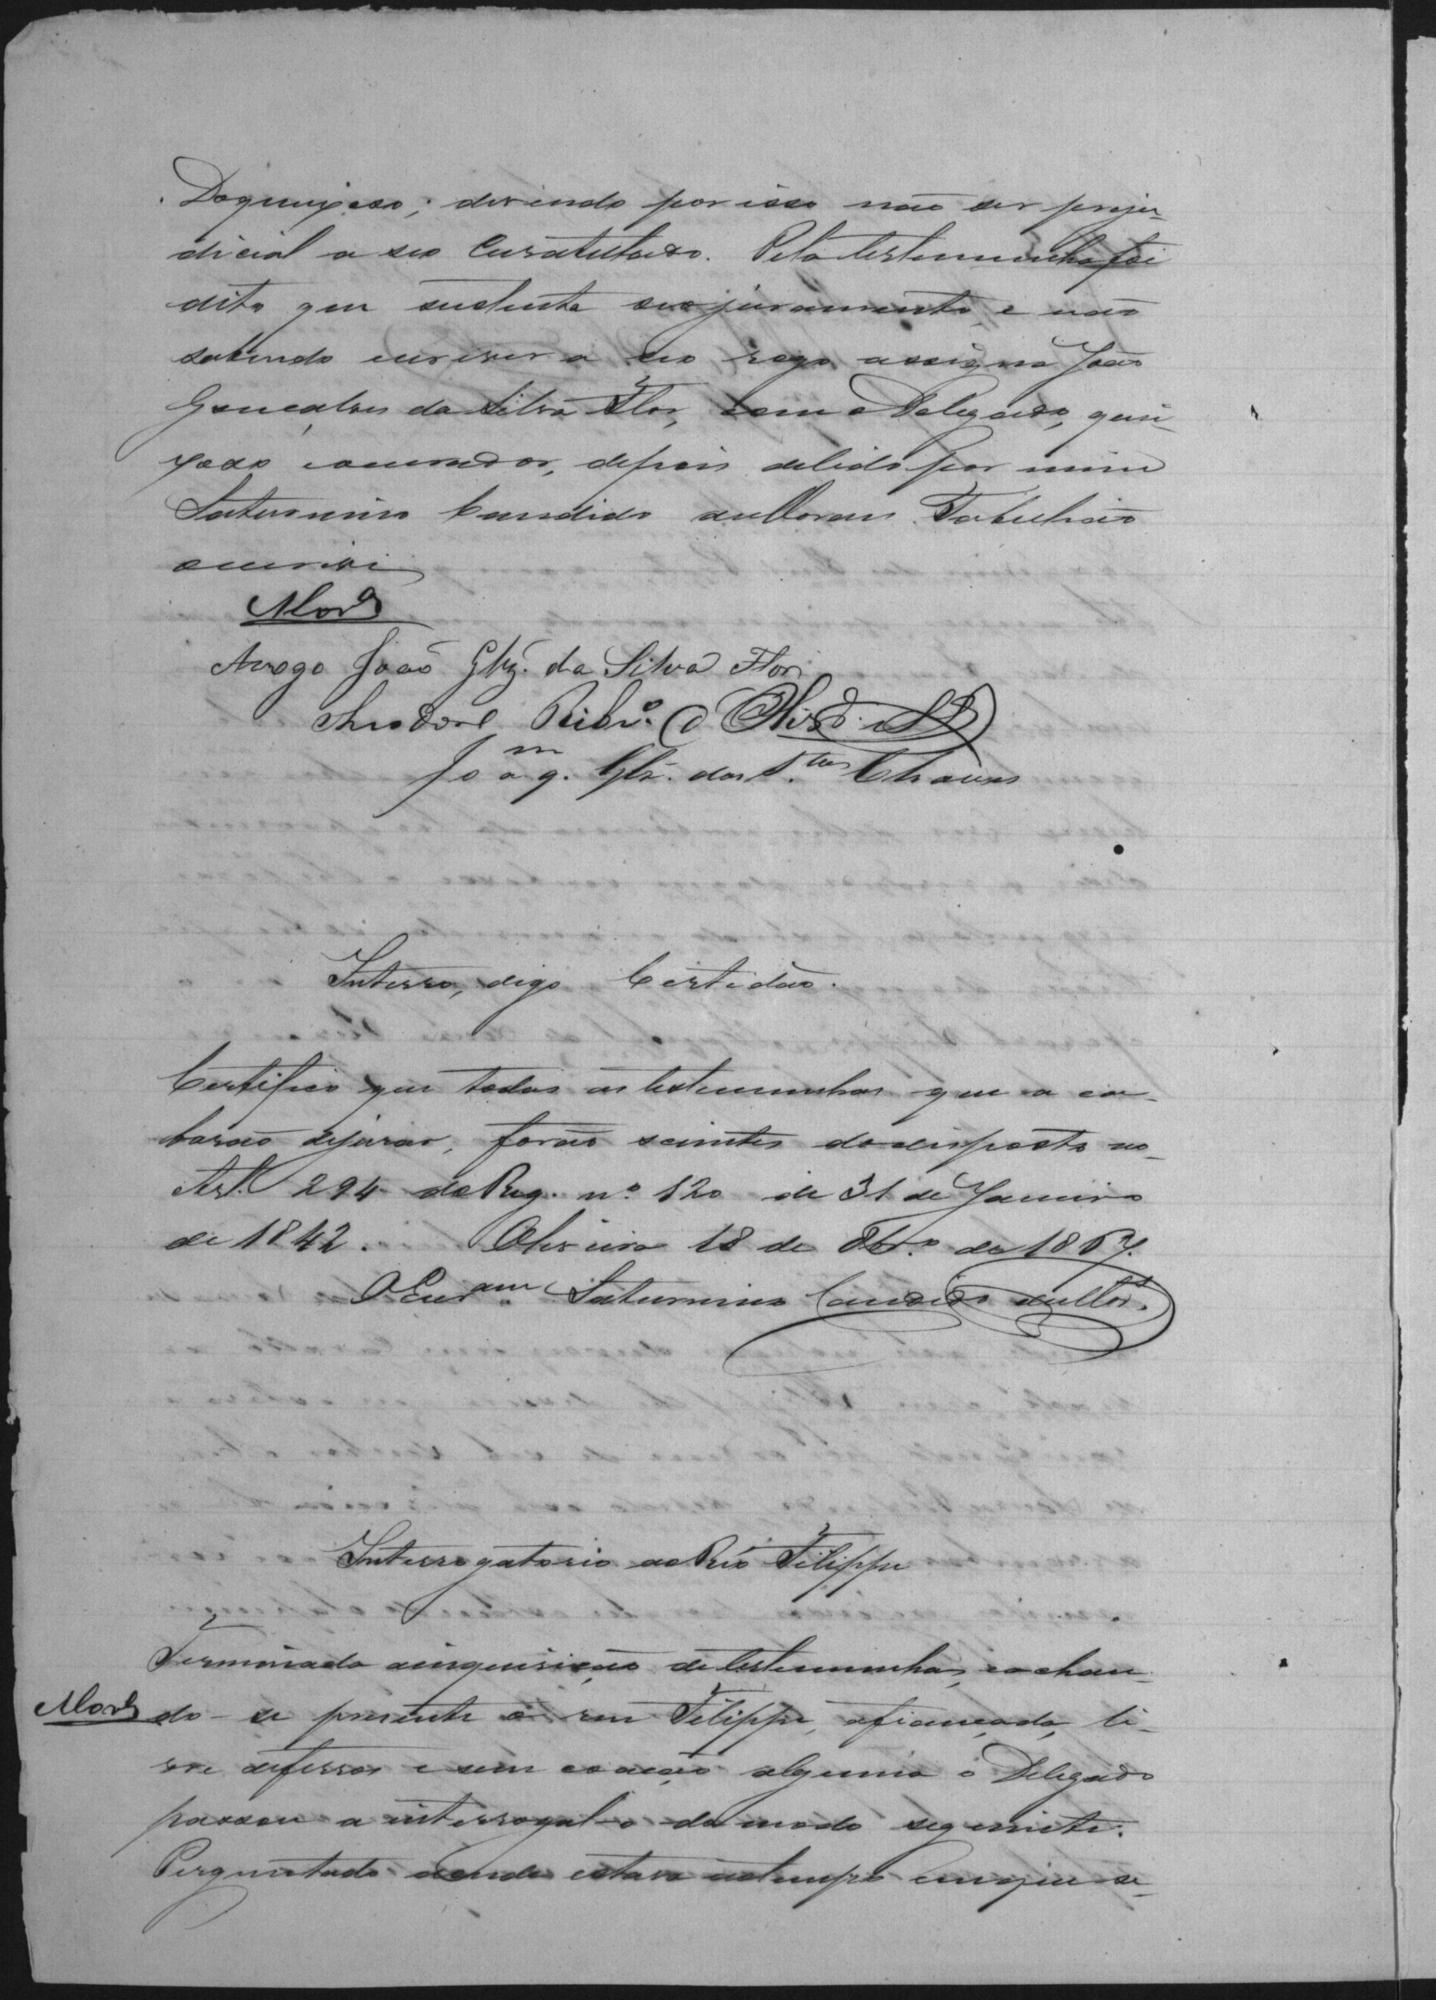 Do queixoso; devendo por isso não ser preju-
dicial a seo Curatellado. Pela testemunha foi
dito que sustenta seo juramento e não
sabendo escrever a seo rogo assigna João
Gonçalves da Silva Flor, com o Delegado, quei-
xoso e curador, depois de lido por mim
Saturnino Candido de Moraes Tabelião
o escrevi
Arrogo João Glz. da Silva Flor.
Theodoro Ribr.o d'Olivr.a
Joaq.m Glz. dos S.tos Chaves
Interro, digo Certidão.
Certifico que todas as testemunhas que a ca-
barão dejurar, forão scientes do disposto no
Art. 294 do Reg. nº 120 de 31 de Janeiro
de 1842. Oliveira 18 de 8br.o de 1867.
O Escr.am Saturnino Candido de Mor.
Interrogatorio ao Réo Filippe
Terminada a inquirição de testemunhas, e achan-
do-se presente o reu Filippe, afiançado, li-
vre de ferros e sem coacção alguma o Delegado
passou a interrogal-o do modo seguinte:
Perguntado aonde estava no tempo em que se-